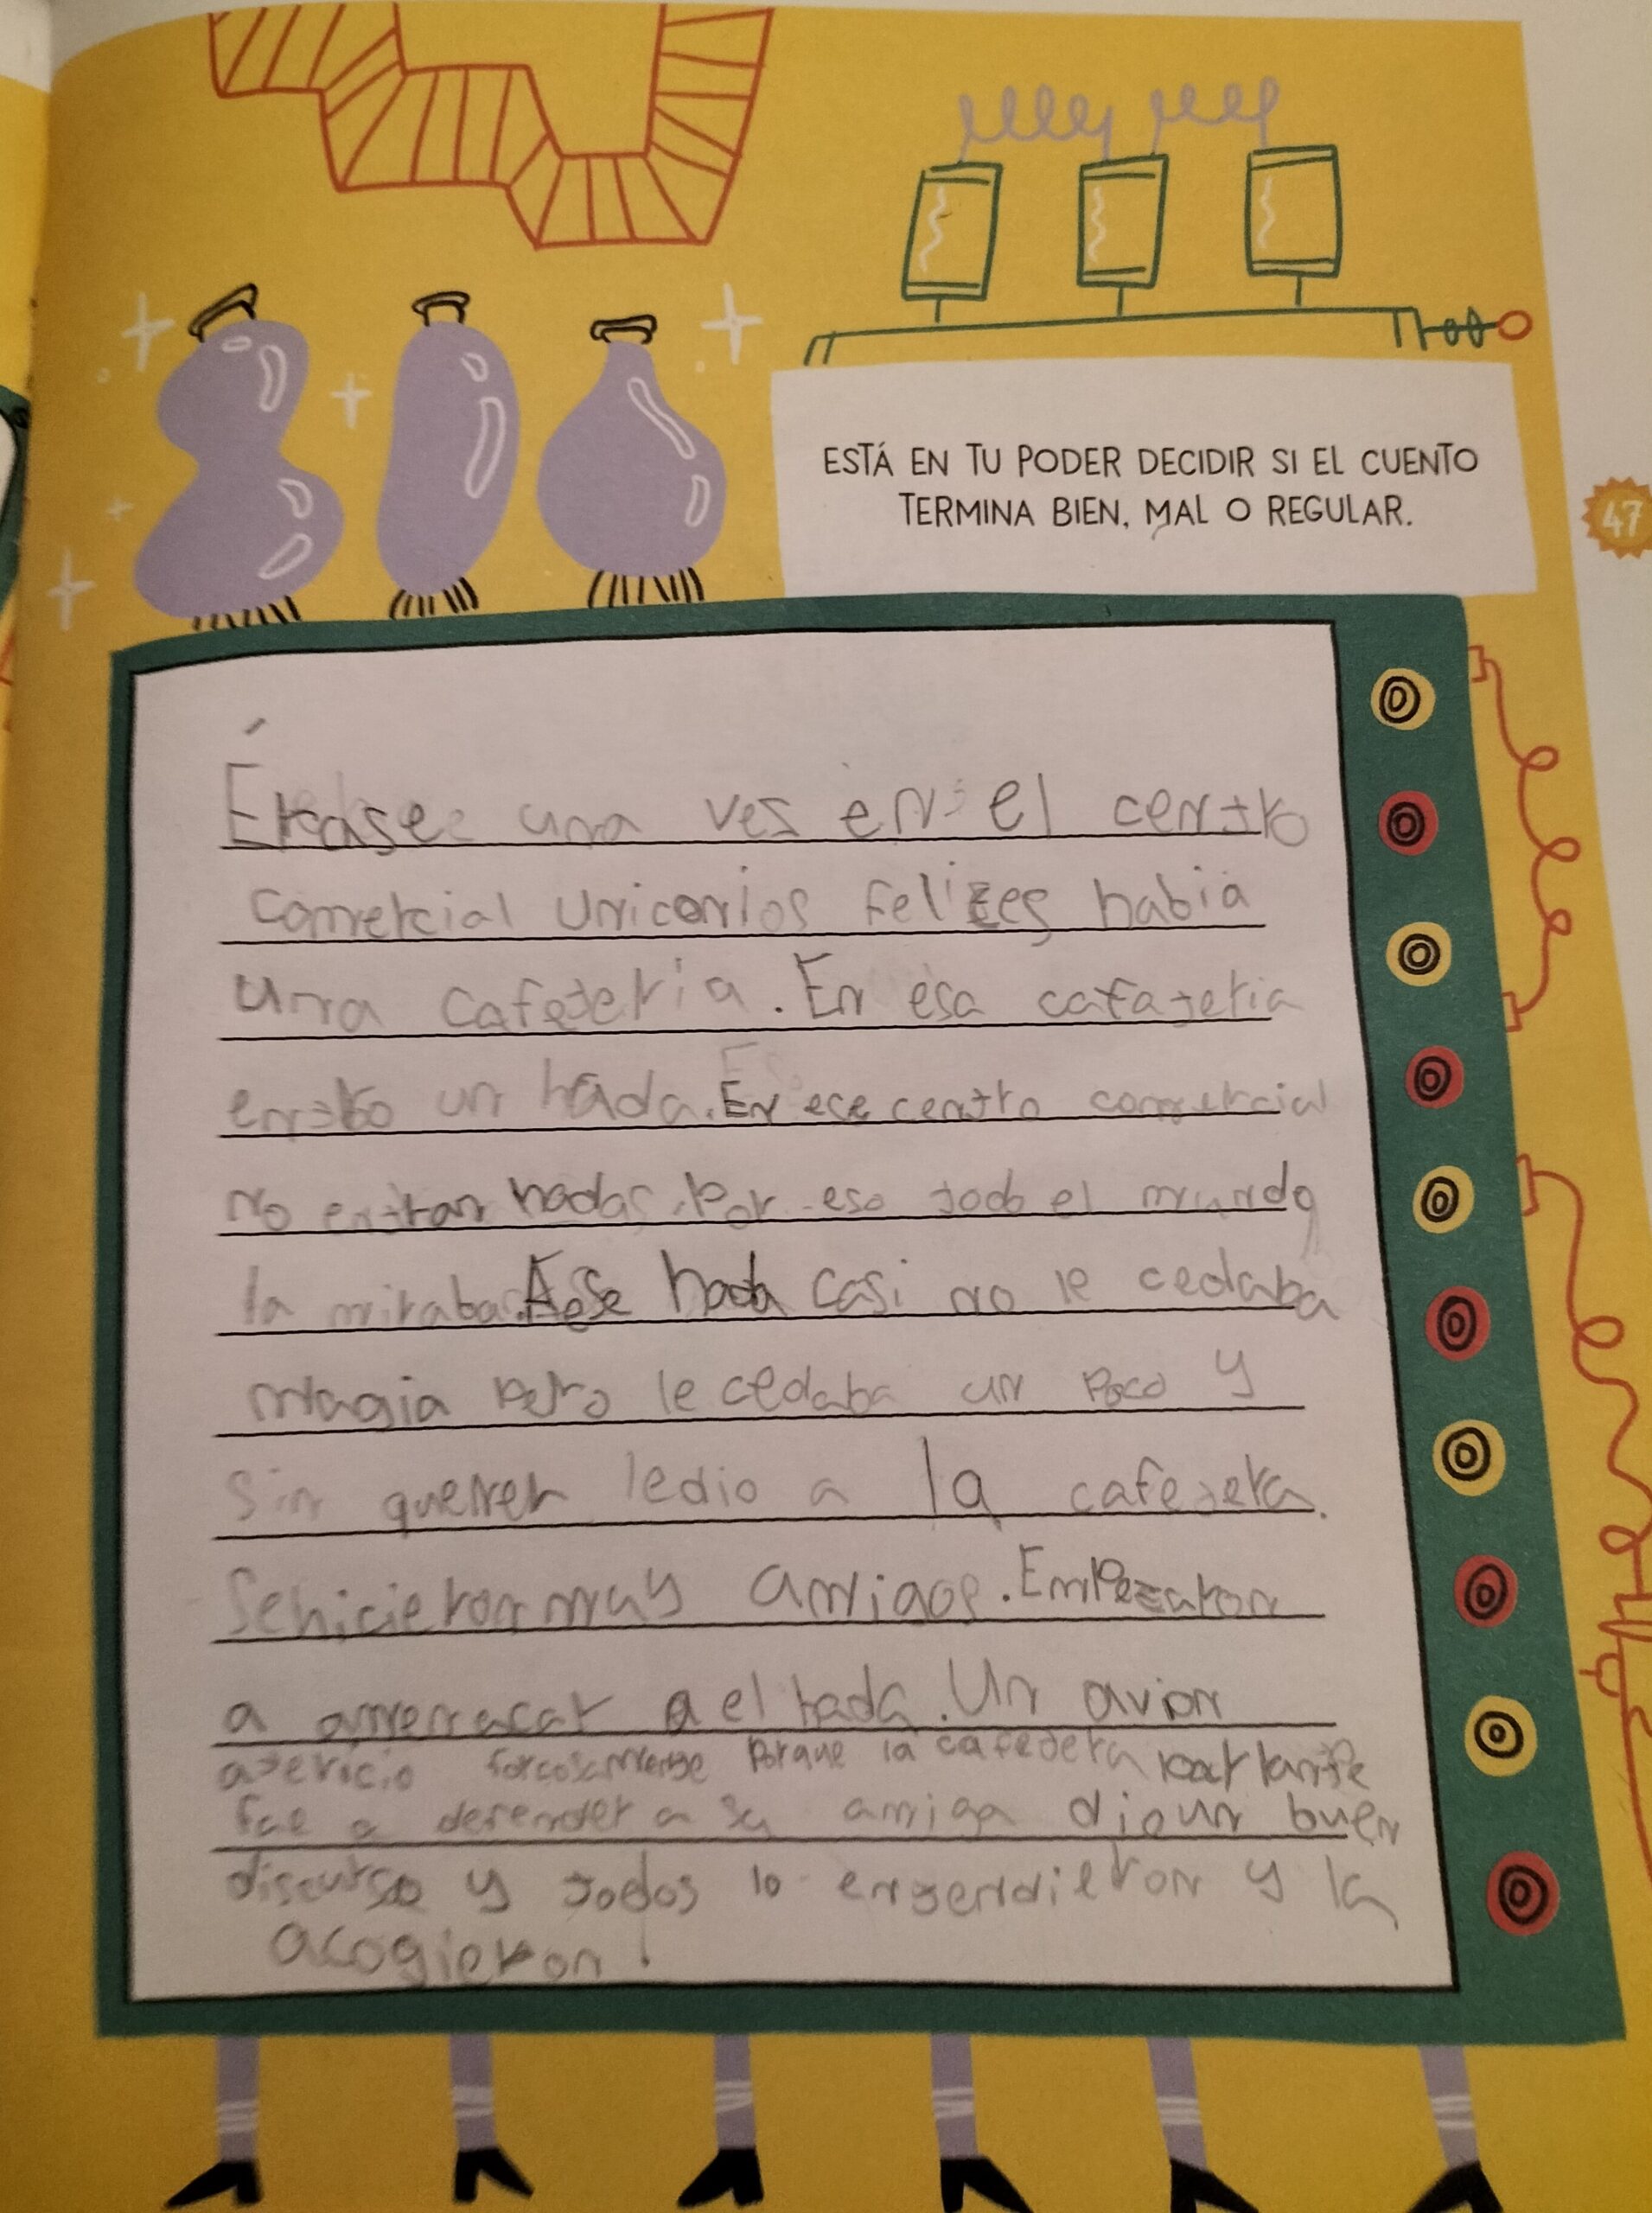 ESTÁ EN TU PODER DECIDIR SI EL CUENTO
TERMINA BIEN, MAL O REGULAR.
47
Érase una ves en el centro
comercial unicornios felizes habia
una cafeteria. En esa cafateria
entro un hada. En ese centro comercial
no entran hadas. Por eso todo el mundo
la miraba. A ese hada casi no le cedaba
magia pero le cedaba un poco y
sin querer ledio a la cafetera.
Sehicieron muy amigos. Empezaron
a amenacar a el hada. Un avion
atericio forcosamente porque la cafetera parlante
fue a defender a su amiga dioun buen
discurso y todos lo entendieron y la
acogieron!